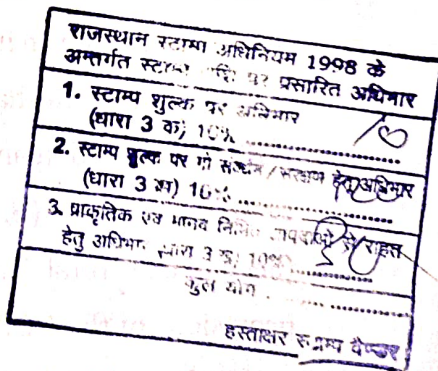 राजस्थान स्टाम्प अधिनियम 1998 के
अन्तर्गत स्टाम्प पर प्रसारित अधिभार
1. स्टाम्प शुल्क पर अधिभार
(धारा 3 क) 10% ..........
2. स्टाम्प शुल्क पर गो संवर्धन/संरक्षण हेतु अधिभार
(धारा 3 ख) 10% ..........
3. प्राकृतिक एवं मानव निर्मित आपदाओं से राहत
हेतु अधिभार धारा 3 क, 10% ..........
कुल योग ..........
हस्ताक्षर स्टाम्प वैण्डर